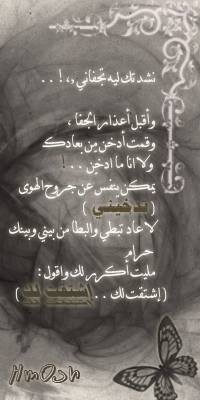 نشدتك ليه تجفاني ,، ! . .
وأقبل أعذار الجفا ،
وقمت أدخن من بعادك
ولا انا ما ادخن . . !
يمكن يتنفس عن جروح الهوى
( تدخيني )
لا عاد تبطي والبطا من بيني وبينك
حرام
مليت أكرر لك واقول :
( إشتقت لك . . إشتقت لك )